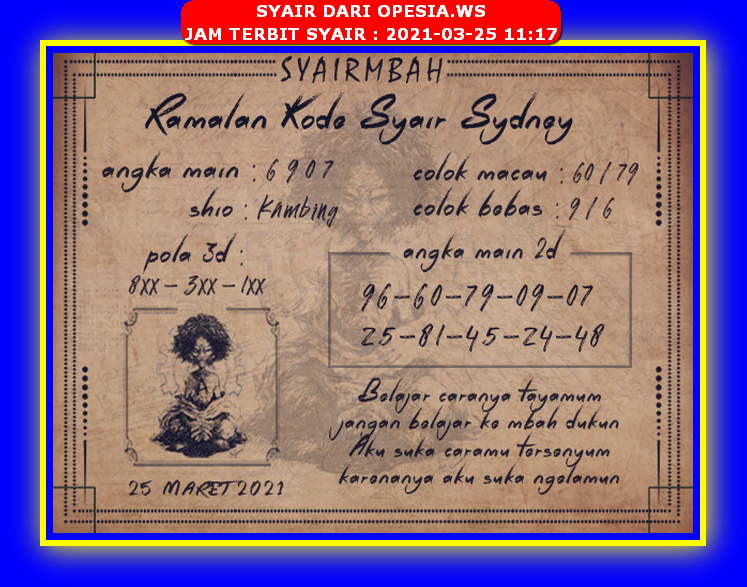 SYAIR DARI OPESIA.WS
JAM TERBIT SYAIR : 2021-03-25 11:17
SYAIRMBAH
Ramalan Kode Syair Sydney
angka main : 6 9 0 7
shio : Kambing
colok macau : 60 / 79
colok bebas : 9 / 6
pola 3d :
8XX - 3XX - 1XX
angka main 2d
96-60-79-09-07
25-81-45-24-48
25 MARET 2021
Belajar caranya tayamum
jangan belajar ke mbah dukun
Aku suka caramu tersenyum
karenanya aku suka ngelamun